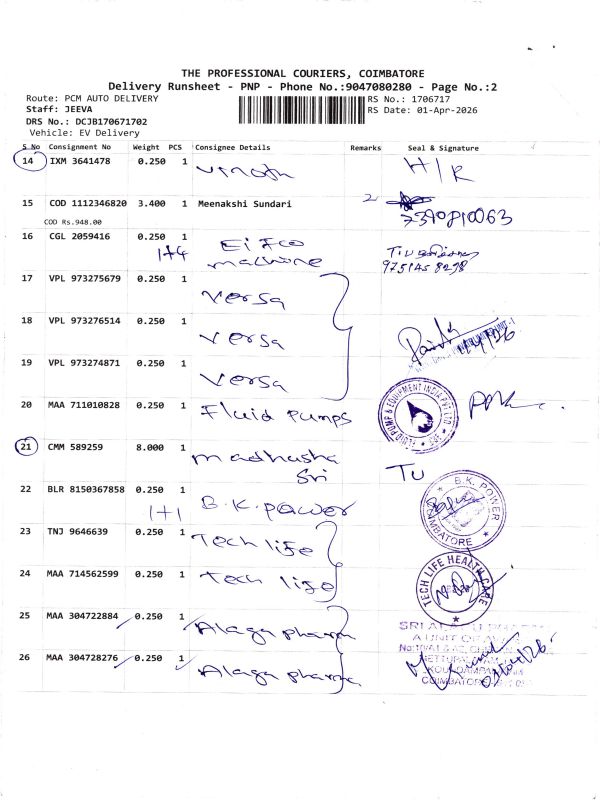 THE PROFESSIONAL COURIERS, COIMBATORE
Delivery Runsheet - PNP - Phone No.:9047080280 - Page No.:2
Route: PCM AUTO DELIVERY
RS No.: 1706717
Staff: JEEVA
RS Date: 01-Apr-2026
DRS No.: DCJB170671702
Vehicle: EV Delivery
S No Consignment No Weight PCS Consignee Details Remarks Seal & Signature
14 IXM 3641478 0.250 1 Vinoth H/R
15 COD 1112346820 3.400 1 Meenakshi Sundari
COD Rs.948.00
7390810063
16 CGL 2059416 0.250 1
1+4
machine
9751458298
17 VPL 973275679 0.250 1 Versa
18 VPL 973276514 0.250 1 Versa
19 VPL 973274871 0.250 1 Versa
20 MAA 711010828 0.250 1 Fluid Pumps
FLUID PUMP & EQUIPMENT INDIA PVT LTD
21 CMM 589259 8.000 1 Madhusha
Sri
TU
22 BLR 8150367858 0.250 1 B.K. power
1+1
B.K. POWER
COIMBATORE
23 TNJ 9646639 0.250 1 Tech life
24 MAA 714562599 0.250 1 Tech life
TECH LIFE HEALTH CARE
25 MAA 304722884 0.250 1 Alaga pharma
26 MAA 304728276 0.250 1 Alaga pharma
SRI
A UNIT OF
COIMBATORE